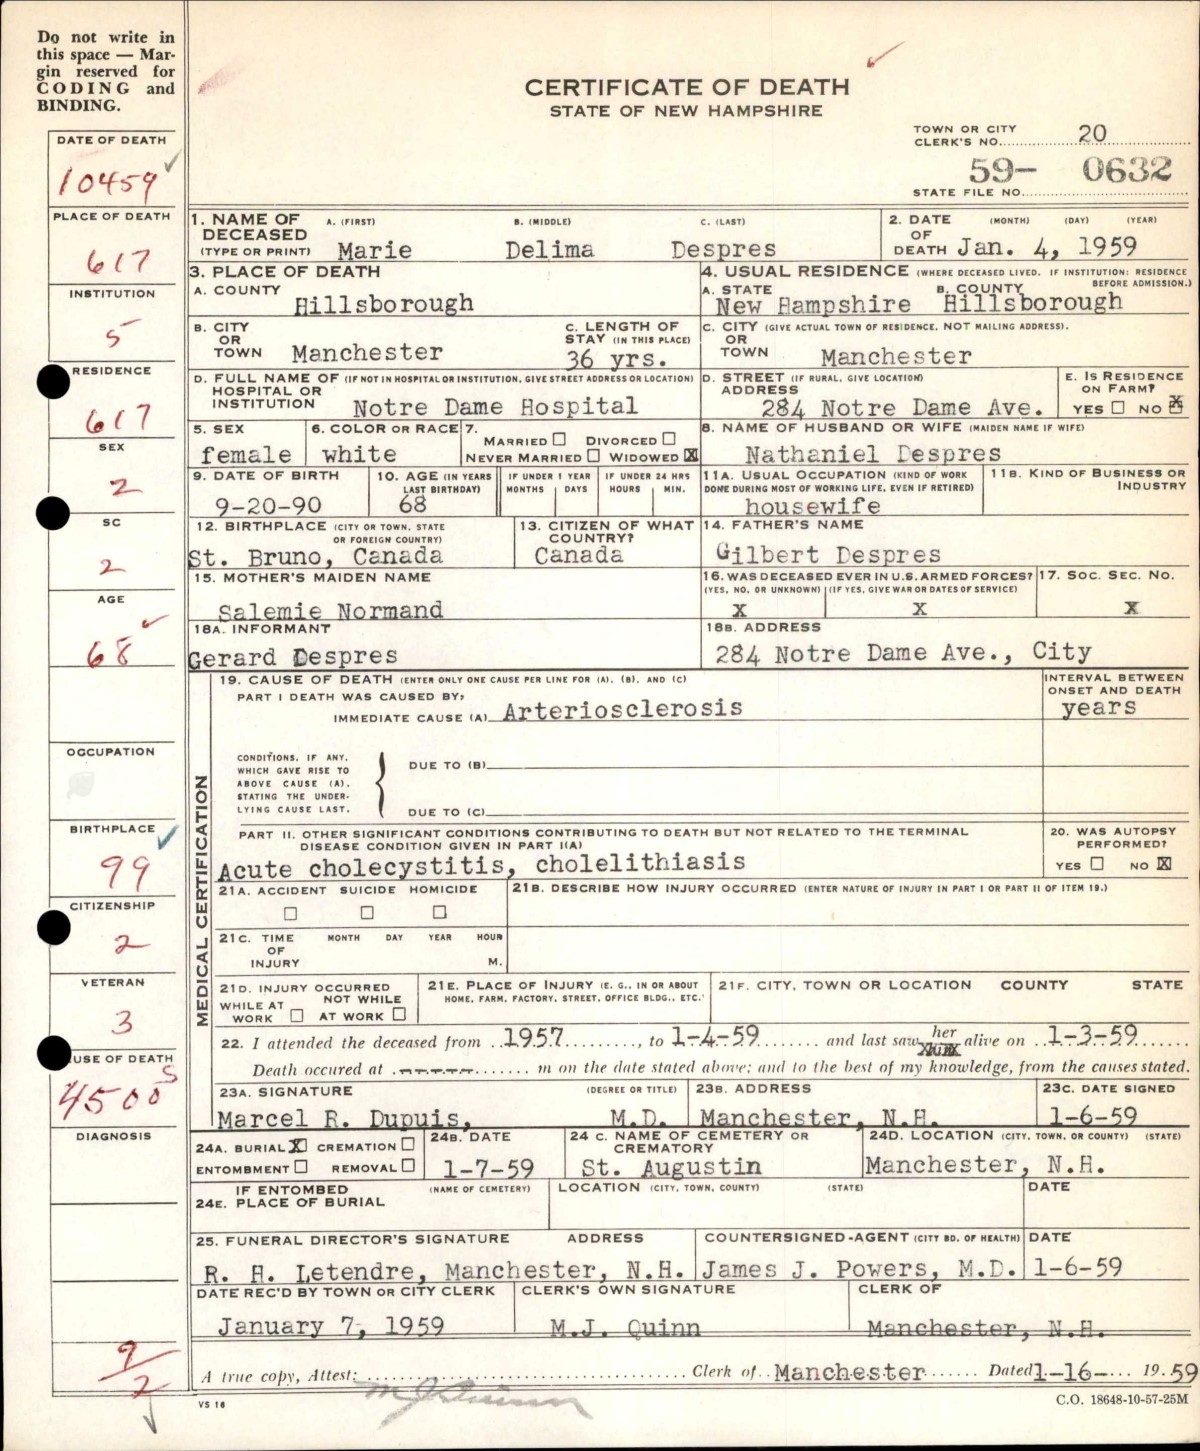 Do not write in
this space — Mar-
gin reserved for
CODING and
BINDING.
CERTIFICATE OF DEATH
STATE OF NEW HAMPSHIRE
TOWN OR CITY
CLERK'S NO. 20
59- 0632
STATE FILE NO.
DATE OF DEATH
10459
PLACE OF DEATH
617
INSTITUTION
5
RESIDENCE
617
SEX
2
SC
2
AGE
68
OCCUPATION
BIRTHPLACE
99
CITIZENSHIP
2
VETERAN
3
USE OF DEATH
4500 S
DIAGNOSIS
9/2
1. NAME OF DECEASED (TYPE OR PRINT) A. (FIRST) Marie B. (MIDDLE) Delima C. (LAST) Despres
2. DATE OF DEATH (MONTH) (DAY) (YEAR) Jan. 4, 1959
3. PLACE OF DEATH
A. COUNTY Hillsborough
4. USUAL RESIDENCE (WHERE DECEASED LIVED. IF INSTITUTION: RESIDENCE BEFORE ADMISSION.)
A. STATE New Hampshire B. COUNTY Hillsborough
B. CITY OR TOWN Manchester
C. LENGTH OF STAY (IN THIS PLACE) 36 yrs.
C. CITY (GIVE ACTUAL TOWN OF RESIDENCE, NOT MAILING ADDRESS). OR TOWN Manchester
D. FULL NAME OF (IF NOT IN HOSPITAL OR INSTITUTION, GIVE STREET ADDRESS OR LOCATION) HOSPITAL OR INSTITUTION Notre Dame Hospital
D. STREET (IF RURAL, GIVE LOCATION) ADDRESS 284 Notre Dame Ave.
E. IS RESIDENCE ON FARM? YES NO X
5. SEX female
6. COLOR OR RACE white
7. MARRIED DIVORCED
NEVER MARRIED WIDOWED X
8. NAME OF HUSBAND OR WIFE (MAIDEN NAME IF WIFE) Nathaniel Despres
9. DATE OF BIRTH 9-20-90
10. AGE (IN YEARS LAST BIRTHDAY) 68
IF UNDER 1 YEAR MONTHS DAYS
IF UNDER 24 HRS HOURS MIN.
11A. USUAL OCCUPATION (KIND OF WORK DONE DURING MOST OF WORKING LIFE, EVEN IF RETIRED) housewife
11B. KIND OF BUSINESS OR INDUSTRY
12. BIRTHPLACE (CITY OR TOWN, STATE OR FOREIGN COUNTRY) St. Bruno, Canada
13. CITIZEN OF WHAT COUNTRY? Canada
14. FATHER'S NAME Gilbert Despres
15. MOTHER'S MAIDEN NAME Salemie Normand
16. WAS DECEASED EVER IN U.S. ARMED FORCES? (YES, NO, OR UNKNOWN) (IF YES, GIVE WAR OR DATES OF SERVICE) X X
17. SOC. SEC. NO. X
18A. INFORMANT Gerard Despres
18B. ADDRESS 284 Notre Dame Ave., City
MEDICAL CERTIFICATION
19. CAUSE OF DEATH (ENTER ONLY ONE CAUSE PER LINE FOR (A), (B), AND (C)
PART I DEATH WAS CAUSED BY,
IMMEDIATE CAUSE (A) Arteriosclerosis
INTERVAL BETWEEN ONSET AND DEATH years
CONDITIONS, IF ANY,
WHICH GAVE RISE TO
ABOVE CAUSE (A),
STATING THE UNDER-
LYING CAUSE LAST.
DUE TO (B)
DUE TO (C)
PART II. OTHER SIGNIFICANT CONDITIONS CONTRIBUTING TO DEATH BUT NOT RELATED TO THE TERMINAL
DISEASE CONDITION GIVEN IN PART I(A)
Acute cholecystitis, cholelithiasis
20. WAS AUTOPSY PERFORMED? YES NO X
21A. ACCIDENT SUICIDE HOMICIDE
21B. DESCRIBE HOW INJURY OCCURRED (ENTER NATURE OF INJURY IN PART I OR PART II OF ITEM 19.)
21C. TIME OF INJURY MONTH DAY YEAR HOUR M.
21D. INJURY OCCURRED WHILE AT WORK NOT WHILE AT WORK
21E. PLACE OF INJURY (E. G., IN OR ABOUT HOME, FARM, FACTORY, STREET, OFFICE BLDG., ETC.)
21F. CITY, TOWN OR LOCATION COUNTY STATE
22. I attended the deceased from 1957, to 1-4-59 and last saw her alive on 1-3-59
Death occured at ------ m on the date stated above; and to the best of my knowledge, from the causes stated.
23A. SIGNATURE (DEGREE OR TITLE) Marcel R. Dupuis, M.D.
23B. ADDRESS Manchester, N.H.
23C. DATE SIGNED 1-6-59
24A. BURIAL X CREMATION
ENTOMBMENT REMOVAL
24B. DATE 1-7-59
24 C. NAME OF CEMETERY OR CREMATORY St. Augustin
24D. LOCATION (CITY, TOWN, OR COUNTY) (STATE) Manchester, N.H.
IF ENTOMBED (NAME OF CEMETERY) LOCATION (CITY, TOWN, COUNTY) (STATE) DATE
24E. PLACE OF BURIAL
25. FUNERAL DIRECTOR'S SIGNATURE ADDRESS R. H. Letendre, Manchester, N.H.
COUNTERSIGNED-AGENT (CITY BD. OF HEALTH) James J. Powers, M.D.
DATE 1-6-59
DATE REC'D BY TOWN OR CITY CLERK January 7, 1959
CLERK'S OWN SIGNATURE M.J. Quinn
CLERK OF Manchester, N.H.
A true copy, Attest: M J Quinn Clerk of Manchester Dated 1-16- 1959
VS 16
C.O. 18648-10-57-25M